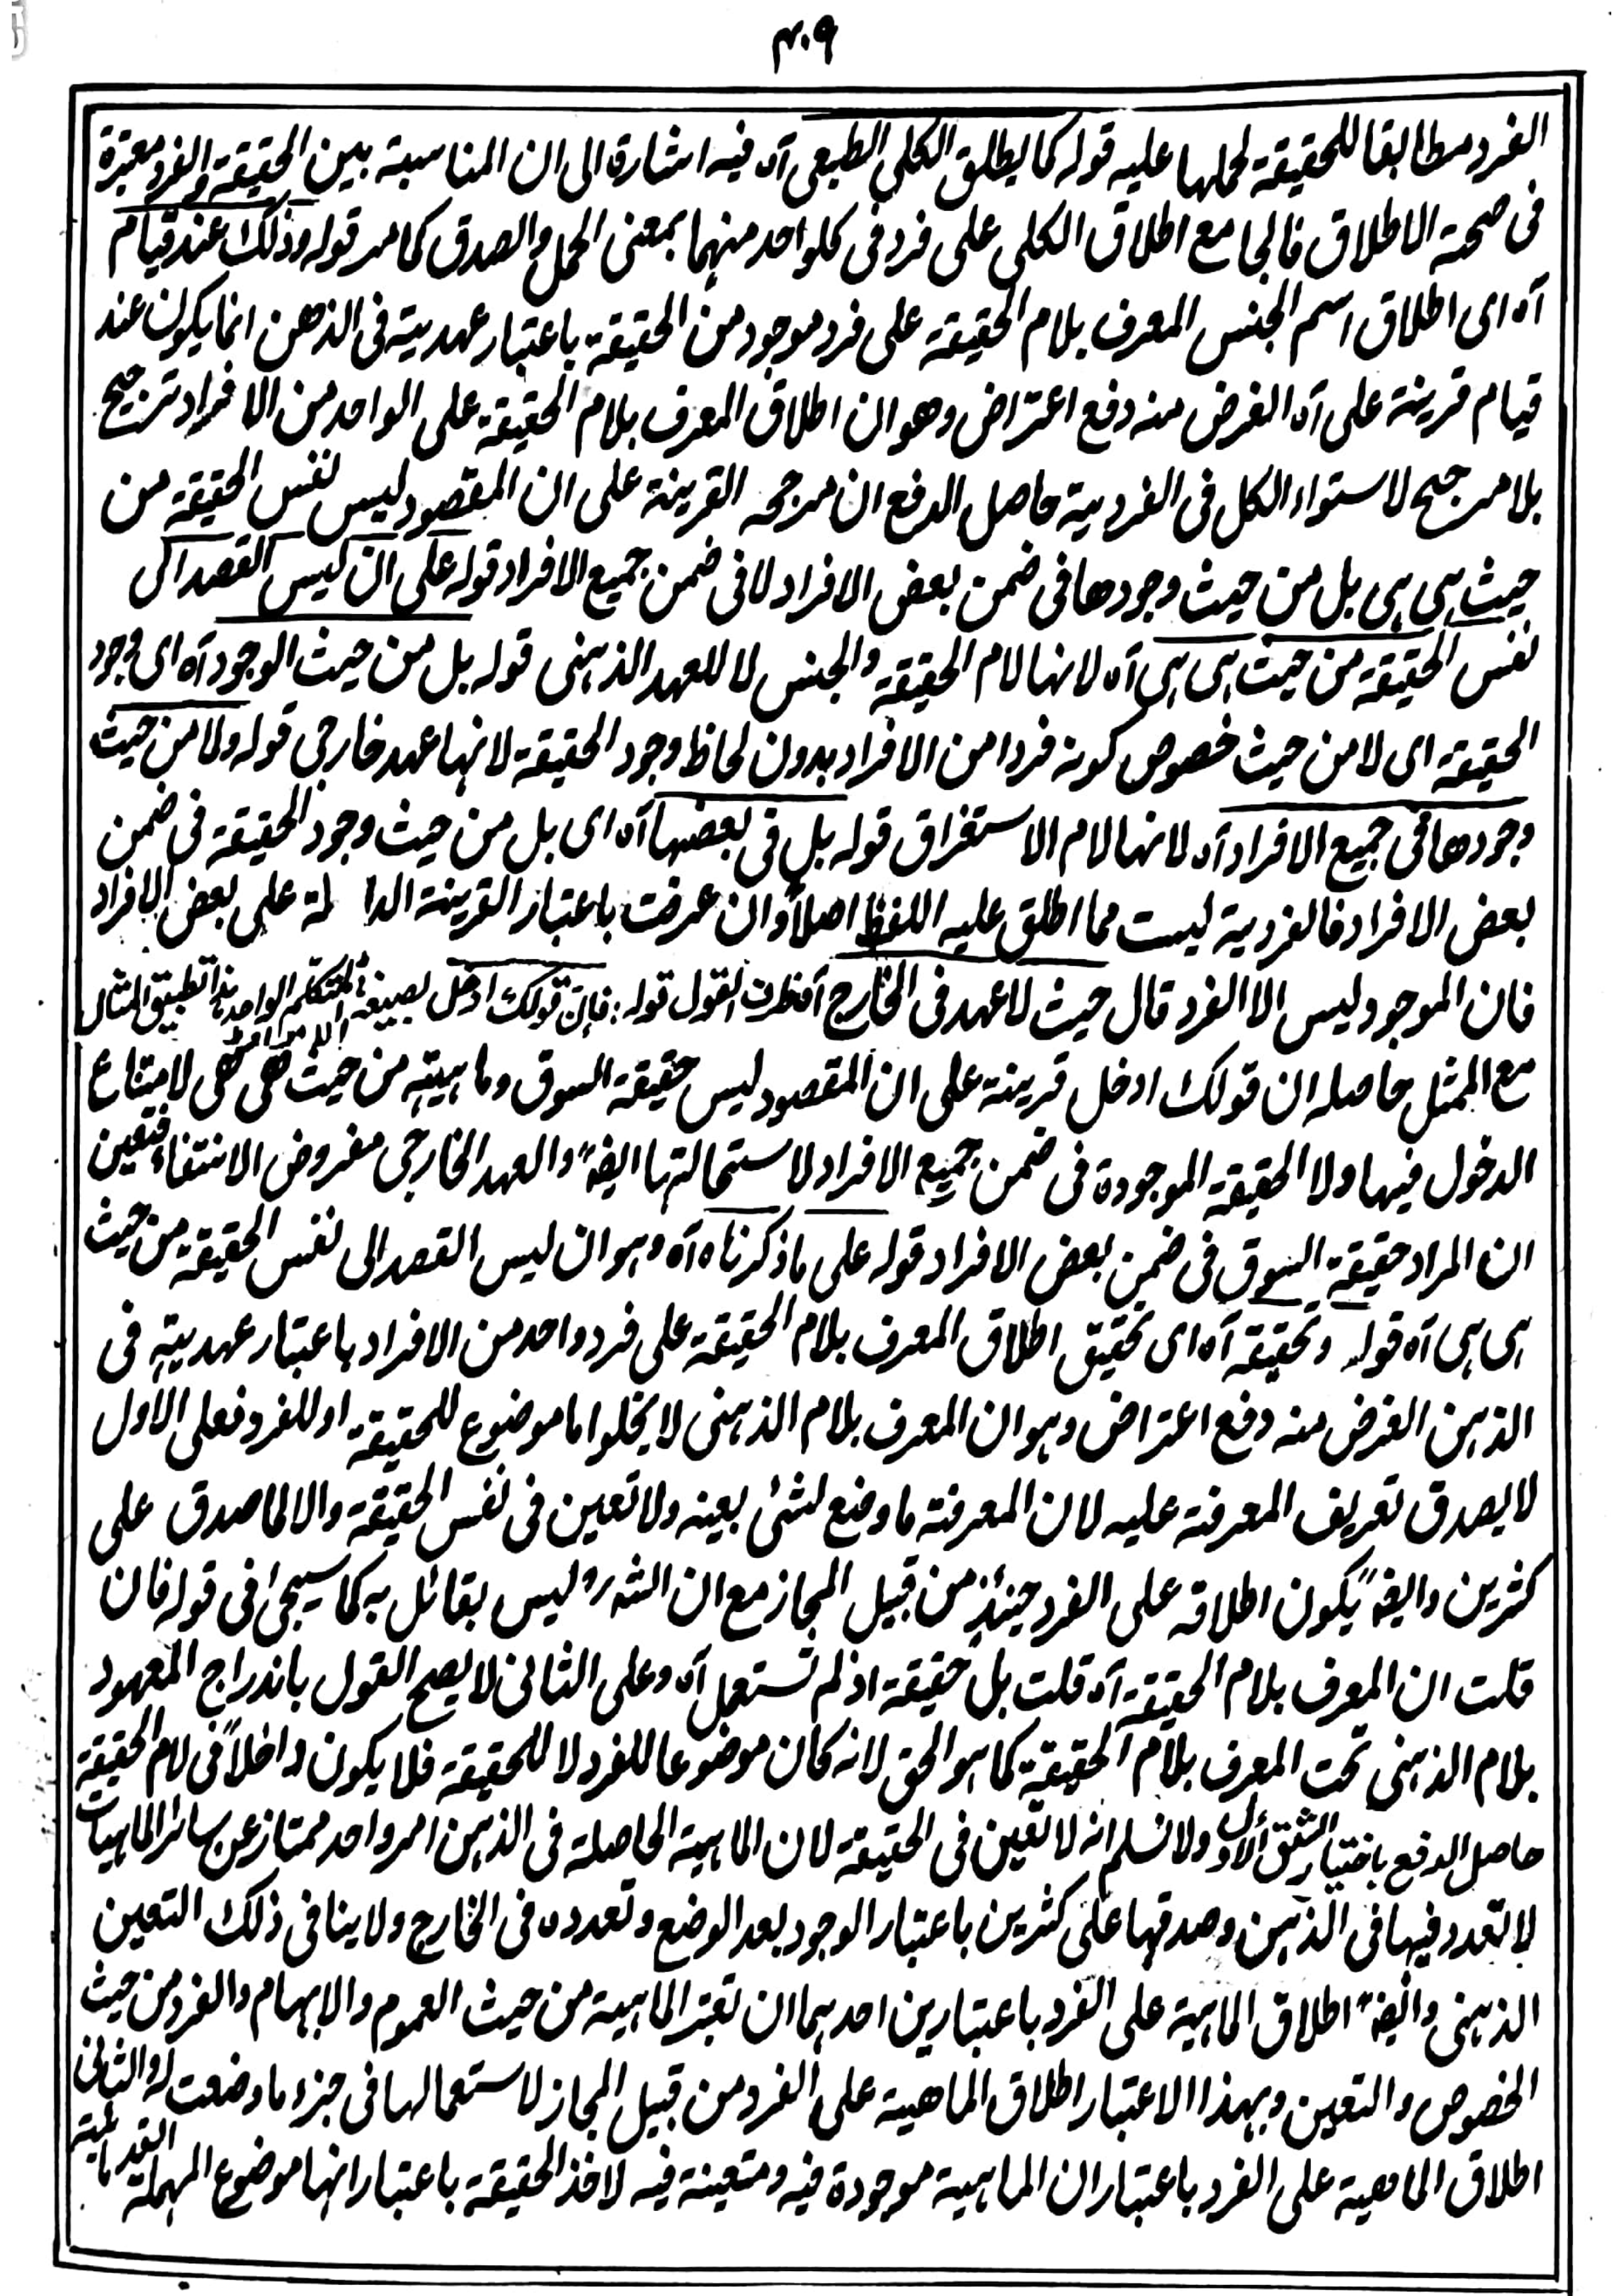 ٣٠٩
الفرد مطابقا للحقيقة لحملها عليه قوله كما يطلق الكلي الطبعي آه فيه اشارة الى ان المناسبة بين الحقيقة والفرد معتبرة
فى صحة الاطلاق فالجامع اطلاق الكلى على فرد فى كلواحد منهما بمعنى الحمل والصدق كما مر قوله وذلك عند قيام
آه اى اطلاق اسم الجنس المعرف بلام الحقيقة على فرد موجود من الحقيقة باعتبار عهديته فى الذهن انما يكون عند
قيام قرينة على آه الغرض منه دفع اعتراض وهو ان اطلاق المعرف بلام الحقيقة على الواحد من الافراد ترجيح
بلا مرجح لاستواء الكل فى الفردية حاصل الدفع ان مرجحه القرينة على ان المقصود ليس نفس الحقيقة من
حيث هى هى بل من حيث وجودها فى ضمن بعض الافراد لا فى ضمن جميع الافراد قوله على ان ليس القصد الى
نفس الحقيقة من حيث هى هى آه لانها لام الحقيقة والجنس لا للعهد الذهنى قوله بل من حيث الوجود آه اى وجود
الحقيقة اى لا من حيث خصوص كونه فردا من الافراد بدون لحاظ وجود الحقيقة لانها عهد خارجى قوله ولا من حيث
وجودها فى جميع الافراد آه لانها لام الاستغراق قوله بل فى بعضها آه اى بل من حيث وجود الحقيقة فى ضمن
بعض الافراد فالفردية ليست مما اطلق عليه اللفظ اصلاً وان عرفت باعتبار القرينة الدالة على بعض الافراد
فان الموجود ليس الا الفرد قال حيث لا عهد فى الخارج آه ظرف القول قوله فان قولك ادخل بصيغة المتكلم الواحد هذا تطبيق المثال
مع الممثل حاصله ان قولك ادخل قرينة على ان المقصود ليس حقيقة السوق وماهيته من حيث هى هى لامتناع
الدخول فيها ولا الحقيقة الموجودة فى ضمن جميع الافراد لاستحالتها ايضا والعهد الخارجى مفروض الانتفاء فتعين
ان المراد حقيقة السوق فى ضمن بعض الافراد قوله على ما ذكرناه آه وهو ان ليس القصد الى نفس الحقيقة من حيث
هى هى آه قوله وتحقيقه آه اى تحقيق اطلاق المعرف بلام الحقيقة على فرد واحد من الافراد باعتبار عهديته فى
الذهن الغرض منه دفع اعتراض وهو ان المعرف بلام الذهنى لا يخلوا ما موضوع للحقيقة او للفرد فعلى الاول
لا يصدق تعريف المعرفة عليه لان المعرفة ما وضع لشئ بعينه ولا تعين فى نفس الحقيقة والا لما صدق على
كثرين وايضا يكون اطلاقه على الفرد حينئذ من قبيل المجاز مع ان الشه ر٥ ليس بقائل به كما سيجئ فى قوله فان
قلت ان المعرف بلام الحقيقة آه قلت بل حقيقة اذ لم تستعمل آه وعلى الثانى لا يصح القول باندراج المعهود
بلام الذهنى تحت المعرف بلام الحقيقة كما هو الحق لانه كان موضوعا للفرد لا للحقيقة فلا يكون داخلاً فى لام الحقيقة
حاصل الدفع باختيار الشق الاول ولا نسلم انه لا تعين فى الحقيقة لان الماهية الحاصلة فى الذهن امر واحد ممتاز عن سائر الماهيات
لا تعدد فيها فى الذهن وصدقها على كثرين باعتبار الوجود بعد الوضع وتعدده فى الخارج ولا ينافى ذلك التعين
الذهنى وايضا اطلاق الماهية على الفرد باعتبارين احدهما ان تعتبر الماهية من حيث العموم والابهام والفرد من حيث
الخصوص والتعين وبهذا الاعتبار اطلاق الماهية على الفرد من قبيل المجاز لاستعمالها فى جزء ما وضعت له والثانى
اطلاق الماهية على الفرد باعتبار ان الماهية موجودة فيه ومتعينة فيه لاخذ الحقيقة باعتبار انها موضوع المهملة القدمائية